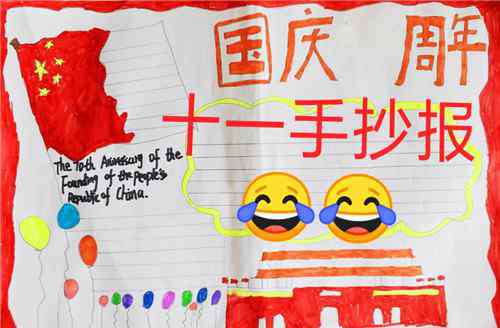 国庆 周年
十一手抄报
The 70th Anniversary of the
Founding of the People's
Republic of China.